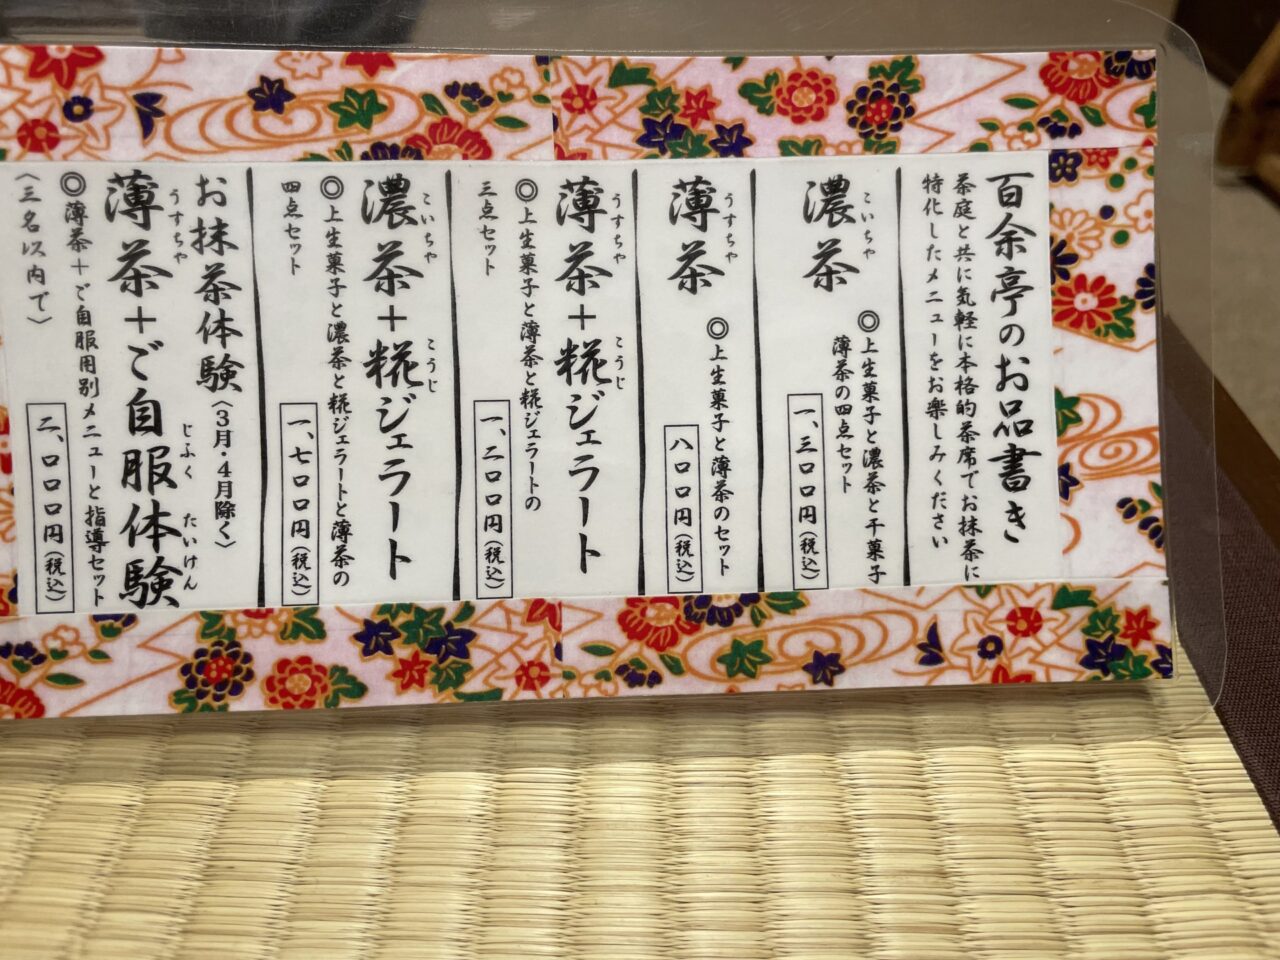 百余亭のお品書き
茶庭と共に気軽に本格的茶席でお抹茶に
特化したメニューをお楽しみください
濃茶
こいちゃ
◎上生菓子と濃茶と干菓子
薄茶の四点セット
一、三〇〇円(税込)
薄茶
うすちゃ
◎上生菓子と薄茶のセット
八〇〇円(税込)
薄茶+糀ジェラート
うすちゃ こうじ
◎上生菓子と薄茶と糀ジェラートの
三点セット
一、二〇〇円(税込)
濃茶+糀ジェラート
こいちゃ こうじ
◎上生菓子と濃茶と糀ジェラートと薄茶の
四点セット
一、七〇〇円(税込)
お抹茶体験〈3月・4月除く〉
薄茶+ご自服体験
うすちゃ じふく たいけん
◎薄茶+ご自服用別メニューと指導セット
〈三名以内で〉
二、〇〇〇円(税込)